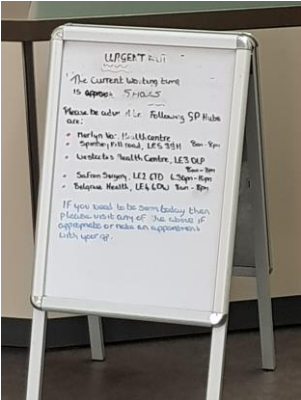 URGENT
The Current Waiting time
is approx 5 HOURS
Please be advised the Following GP Hubs
are:
Merlyn Vaz Health centre
Spinney Hill road, LE5 3GH 8am - 8pm
Westcotes Health Centre, LE3 0LP
8am - 8pm
Saffron Surgery, LE2 6TD 6.30pm - 10pm
Belgrave Health, LE4 8am - 8pm
If you need to be seen today then
please visit any of the above if
appropriate or make an appointment
with your gp.